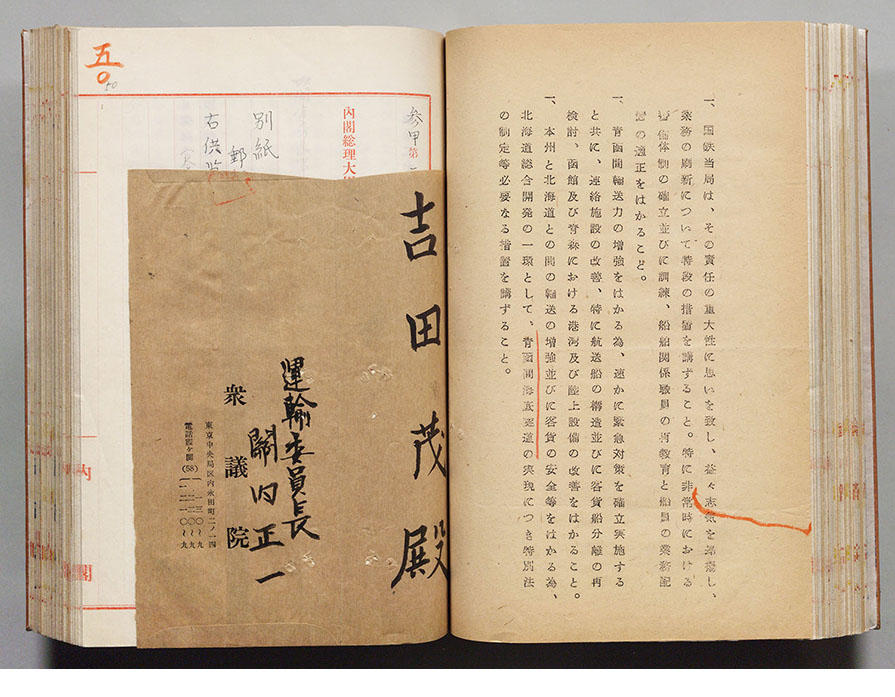 一、国鉄当局は、その責任の重大性に思いを致し、益々志気を昂揚し、
業務の刷新について特段の措置を講ずること。特に非常時における
体制の確立並びに訓練、船舶関係職員の再教育と船員の業務配
置の適正をはかること。
一、青函間輸送力の増強をはかる為、速かに緊急対策を確立実施する
と共に、連絡施設の改善、特に航送船の構造並びに客貨船分離の再
検討、函館及び青森における港湾及び陸上設備の改善をはかること。
一、本州と北海道との間の輸送の増強並びに客貨の安全等をはかる為、
北海道総合開発の一環として、青函間海底隧道の実現につき特別法
の制定等必要なる措置を講ずること。
参甲第
内閣総理大
別紙
郵
右供
五〇
50
吉田茂殿
運輸委員長
關内正一
衆議院
東京中央局区内永田町二ノ一四
電話霞ヶ関(58)
内
閣